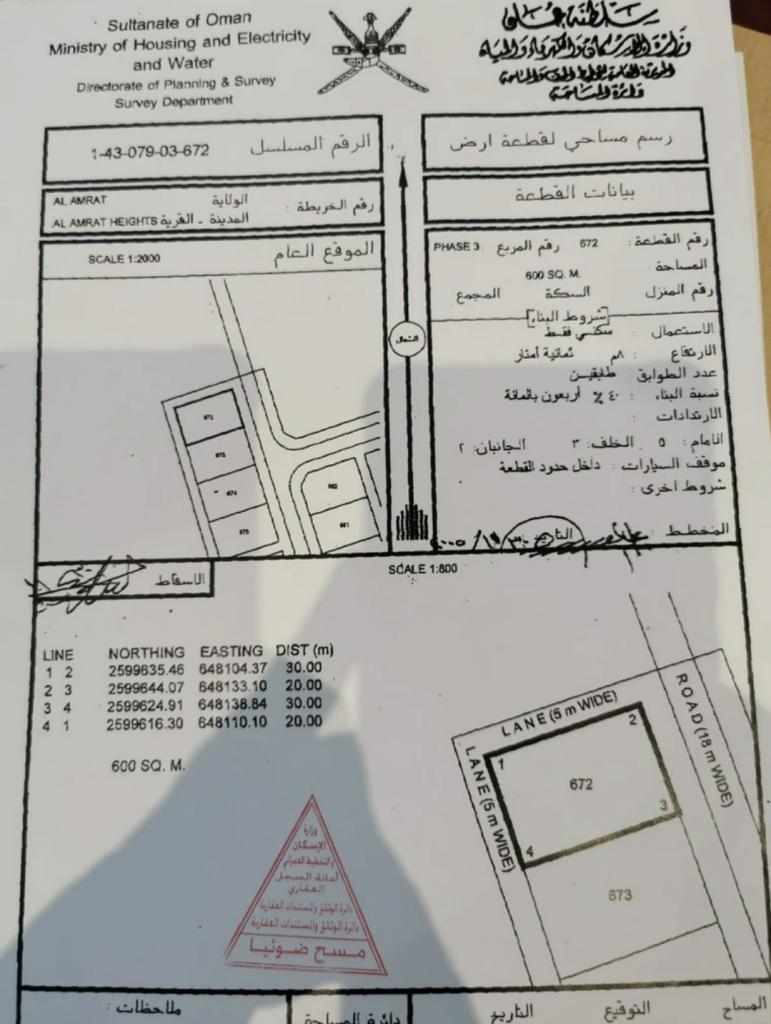 Sultanate of Oman
Ministry of Housing and Electricity
and Water
Directorate of Planning & Survey
Survey Department
سلطنة عمان
وزارة الإسكان والكهرباء والمياه
دائرة المساحة
1-43-079-03-672 الرقم المسلسل
رسم مساحي لقطعة ارض
AL AMRAT الولاية
رقم الخريطة :
AL AMRAT HEIGHTS المدينة - القرية
بيانات القطعة
SCALE 1:2000 الموقع العام
رقم القطعة : 672 رقم المربع PHASE 3:
المساحة : 600 SQ. M.
رقم المنزل السكة المجمع
[شروط البناء]
الاستعمال : سكني فقط
الارتفاع : ٨م ثمانية أمتار
عدد الطوابق : طابقين
نسبة البناء : ٤٠ % أربعون بالمائة
الارتدادات :
الامام : ٥ الخلف : ٣ الجانبان : ٢
موقف السيارات : داخل حدود القطعة
شروط اخرى :
المخطط : التاريخ
الشمال
672
673
674
675
662
661
الاسقاط
SCALE 1:800
LINE NORTHING EASTING DIST (m)
1 2 2599635.46 648104.37 30.00
2 3 2599644.07 648133.10 20.00
3 4 2599624.91 648138.84 30.00
4 1 2599616.30 648110.10 20.00
600 SQ. M.
LANE (5 m WIDE)
LANE (5 m WIDE)
ROAD (18 m WIDE)
1
2
672
3
4
673
وزارة
الإسكان
والتخطيط العمراني
أمانة السجل
العقاري
دائرة الوثائق والمستندات العقارية
دائرة الوثائق والمستندات العقارية
مسح ضوئيا
ملاحظات :
دائرة المساحة
التاريخ
التوقيع
المساح